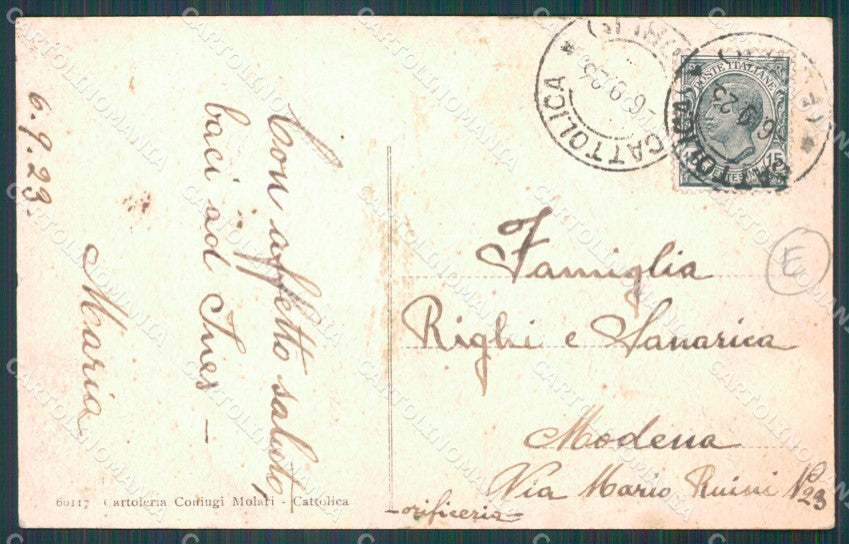 6.9.23.
Con affetto saluto,
baci ad Ines –
Maria
Famiglia
Righi e Sanarica
Modena
Via Mario Ruini Nº 23
– orificeria –
60117 Cartoleria Coniugi Molari - Cattolica
CATTOLICA
6.9.23
CATTOLICA
6.9.23
POSTE ITALIANE
15
E
CARTOLINOMANIA